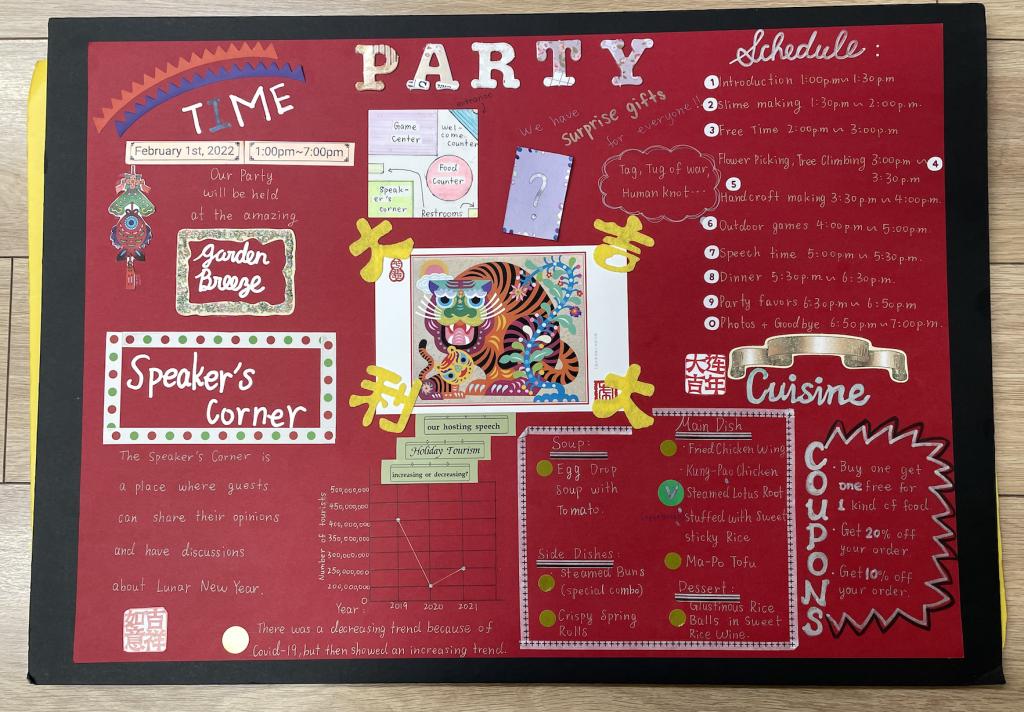 PARTY
TIME
February 1st, 2022
1:00pm~7:00pm
Our Party
will be held
at the amazing
Garden
Breeze
entrance
Game
Center
Wel-
come
counter
Food
Counter
Speak-
er's
corner
Restrooms
We have
surprise gifts
for everyone!!
?
Tag, Tug of war,
Human knot...
Schedule:
1 Introduction 1:00pm~ 1:30pm
2 Slime making 1:30pm ~ 2:00pm.
3 Free Time 2:00pm ~ 3:00pm
Flower Picking, Tree Climbing 3:00pm ~ 4
3:30pm
5
Handcraft making 3:30pm ~ 4:00pm.
6 Outdoor games 4:00pm ~ 5:00pm.
7 Speech time 5:00pm ~ 5:30pm.
8 Dinner 5:30pm ~ 6:30pm.
9 Party favors 6:30pm ~ 6:50pm
0 Photos + Goodbye 6:50pm~7:00pm.
大吉
利大
Speaker's
Corner
The Speaker's Corner is
a place where guests
can share their opinions
and have discussions
about Lunar New Year.
吉祥
如意
our hosting speech
Holiday Tourism
increasing or decreasing?
Number of tourists
500,000,000
450,000,000
400,000,000
350,000,000
300,000,000
250,000,000
200,000,000
0
Year:
2019
2020
2021
There was a decreasing trend because of
Covid-19, but then showed an increasing trend.
Cuisine
Soup:
Egg Drop
Soup with
Tomato.
Side Dishes:
Steamed Buns
(special combo)
Crispy Spring
Rolls
Main Dish
· Fried Chicken Wing
· Kung-Pao Chicken
V Steamed Lotus Root
stuffed with Sweet
sticky Rice
Ma-Po Tofu
Dessert:
Glustinous Rice
Balls in Sweet
Rice Wine.
COUPONS
· Buy one get
one free for
1 kind of food
· Get 20% off
your order
· Get 10% off
your order.